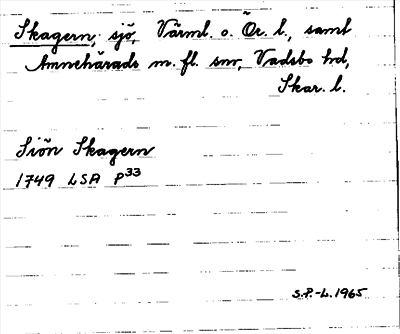 Skagern, sjö, Värml. o. Ör. l., samt
Amnehärads m. fl. snr, Vadsbo hd,
Skar. l.
Siön Skagern
1749 LSA P33
S.P.-L. 1965